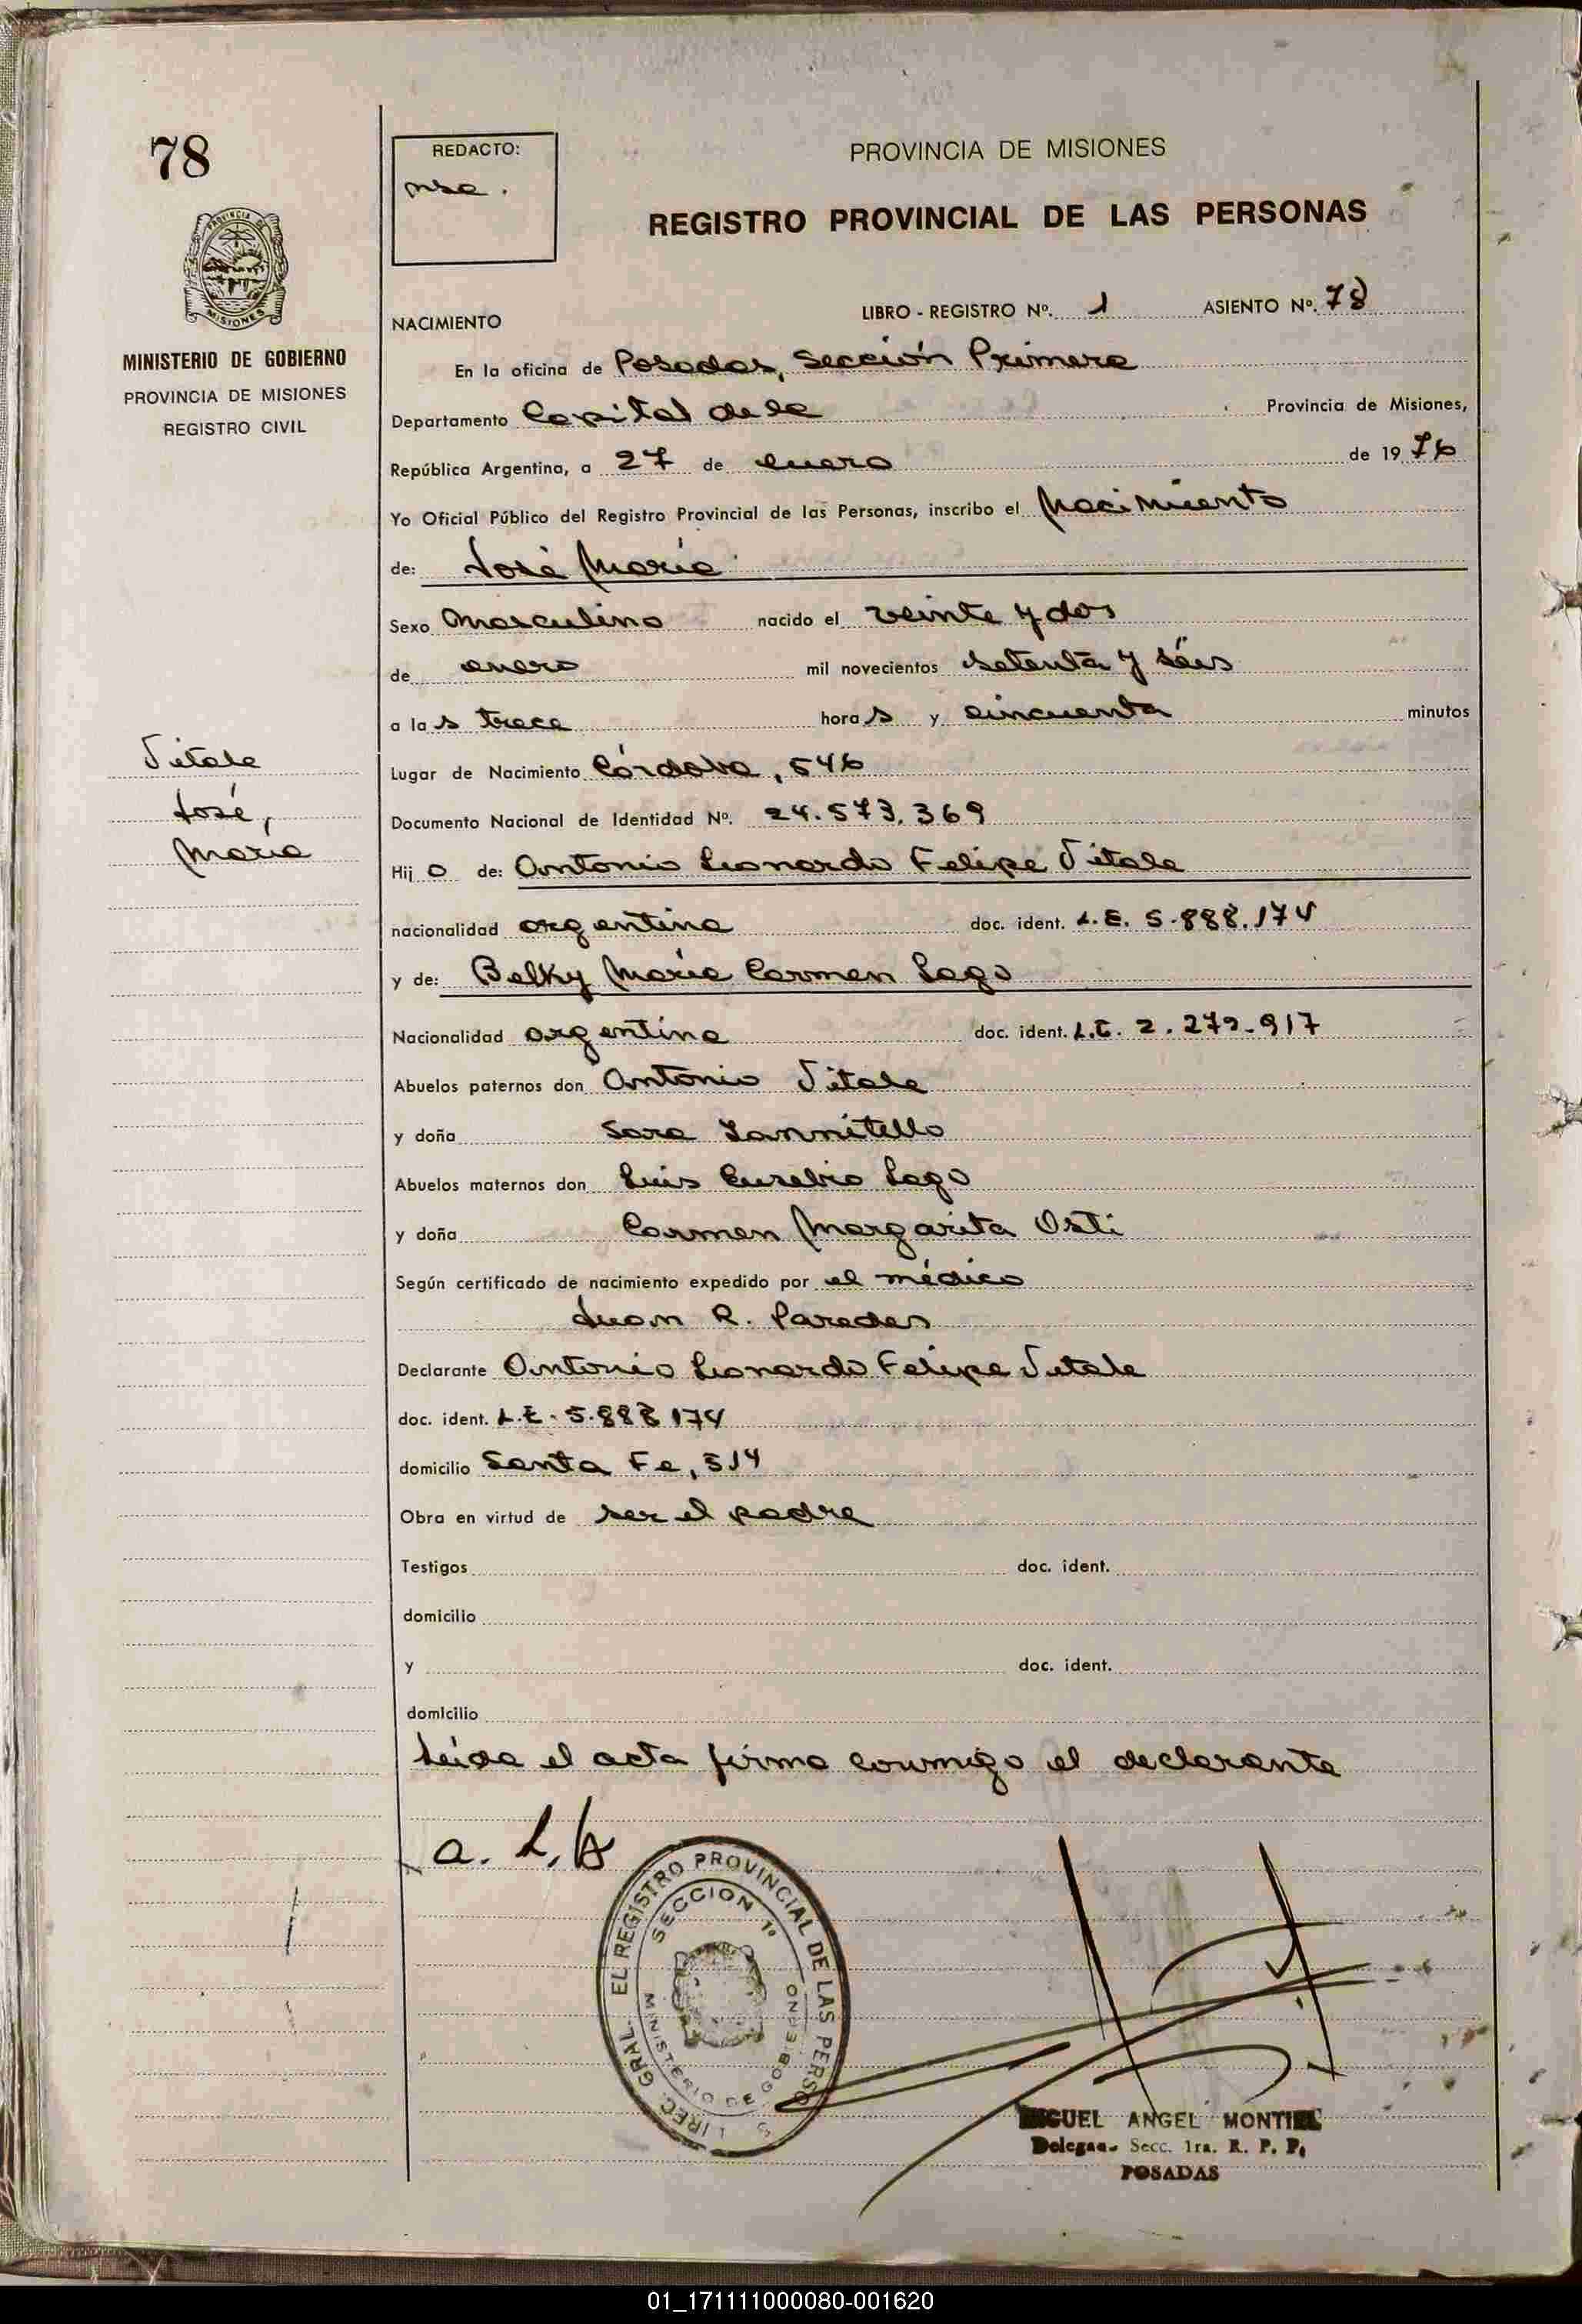 78
REDACTO:
PROVINCIA DE MISIONES
REGISTRO PROVINCIAL DE LAS PERSONAS
PROVINCIA DE
MISIONES
MINISTERIO DE GOBIERNO
PROVINCIA DE MISIONES
REGISTRO CIVIL
NACIMIENTO LIBRO - REGISTRO Nº. 1 ASIENTO Nº. 78
En la oficina de Posadas, Sección Primera
Departamento Capital de la Provincia de Misiones,
República Argentina, a 27 de enero de 1976
Yo Oficial Público del Registro Provincial de las Personas, inscribo el Nacimiento
de: José María
Sexo Masculino nacido el veinte y dos
de enero mil novecientos setenta y séis
a las trece horas y cincuenta minutos
Vitale
José,
María
Lugar de Nacimiento Córdoba, 546
Documento Nacional de Identidad Nº. 24.573.369
Hijo de: Antonio Leonardo Felipe Vitale
nacionalidad argentina doc. ident. L.E. 5.888.174
y de: Belky María Carmen Lago
Nacionalidad argentina doc. ident. L.C. 2.279.917
Abuelos paternos don Antonio Vitale
y doña Sara Iannitello
Abuelos maternos don Luis Eusebio Lago
y doña Carmen Margarita Osti
Según certificado de nacimiento expedido por el médico
Juan R. Paredes
Declarante Antonio Leonardo Felipe Vitale
doc. ident. L.E. 5.888 174
domicilio Santa Fe, 514
Obra en virtud de ser el padre
Testigos doc. ident.
domicilio
y doc. ident.
domicilio
Leida el acta firma conmigo el declarante
a. L.
DIREC. GRAL. EL REGISTRO PROVINCIAL DE LAS PERSO
SECCION 1ª
MINISTERIO DE GOBIERNO
MIGUEL ANGEL MONTIEL
Delegado Secc. 1ra. R. P. P.
POSADAS
01_171111000080-001620